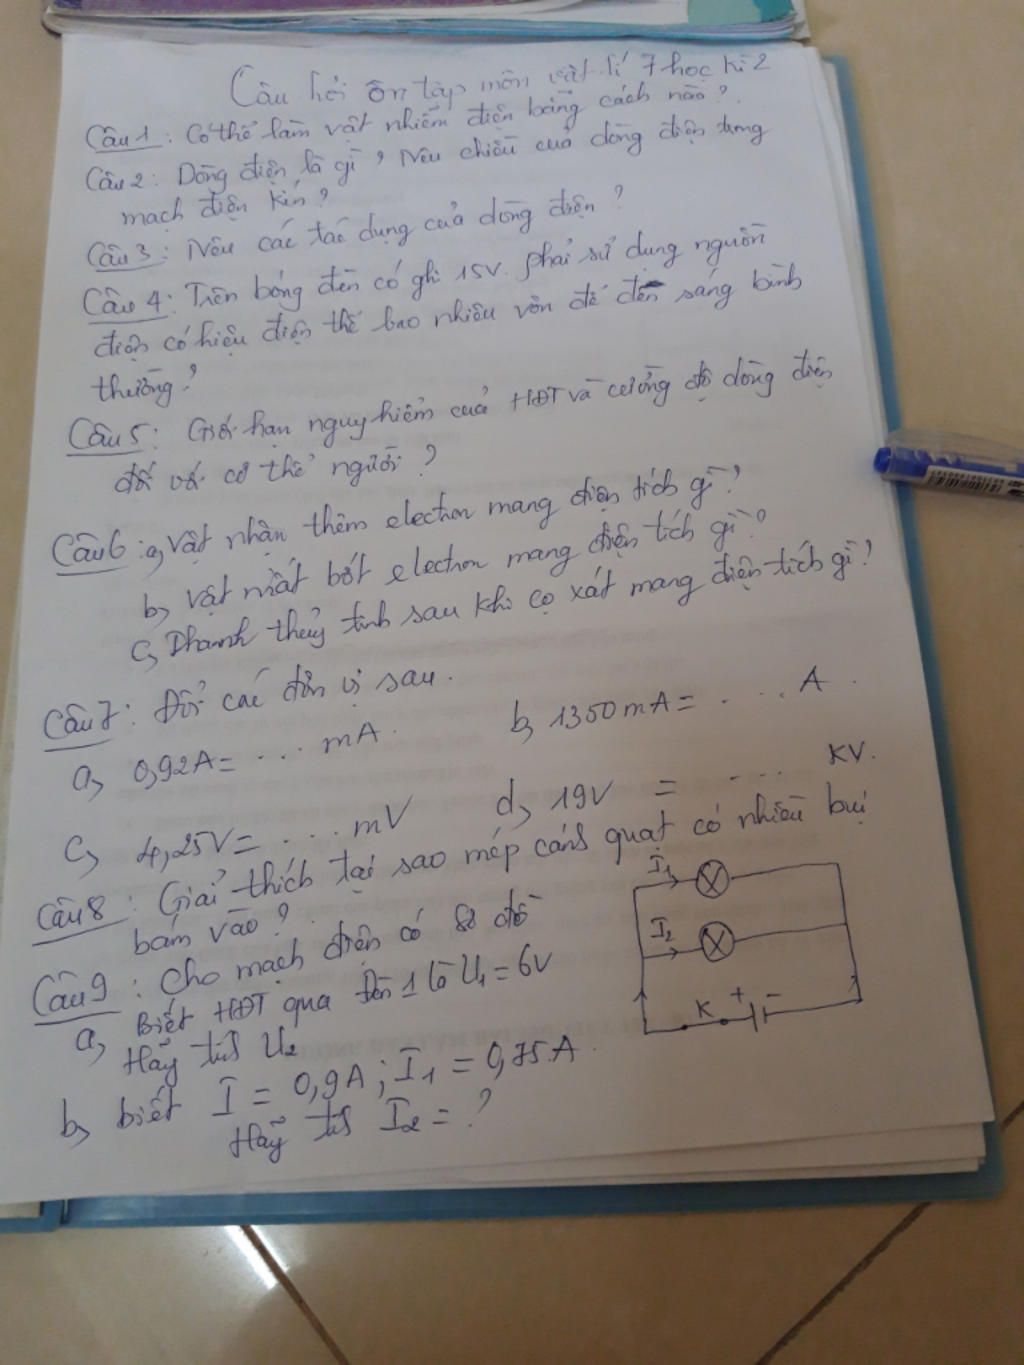 Câu hỏi ôn tập môn vật lí 7 học kì 2
Câu 1: Có thể làm vật nhiễm điện bằng cách nào?
Câu 2: Dòng điện là gì, Nêu chiều của dòng điện trong
mạch điện kín?
Câu 3: Nêu các tác dụng của dòng điện?
Câu 4: Trên bóng đèn có ghi 15V. Phải sử dụng nguồn
điện có hiệu điện thế bao nhiêu vôn để đèn sáng bình
thường?
Câu 5: Giới hạn nguy hiểm của HĐT và cường độ dòng điện
đối với cơ thể người?
Câu 6: a, Vật nhận thêm electron mang điện tích gì?
b, Vật mất bớt electron mang điện tích gì?
c, Thanh thủy tinh sau khi cọ xát mang điện tích gì?
Câu 7: Đổi các đơn vị sau.
a, 0,92A = ... mA. b, 1350mA = .... A.
c, 4,25V = .... mV d, 19V = .... KV.
Câu 8: Giải thích tại sao mép cánh quạt có nhiều bụi
bám vào?
Câu 9: Cho mạch điện có sơ đồ
a, Biết HĐT qua đèn 1 là U1 = 6V
Hãy tính U2
b, biết I = 0,9A; I1 = 0,75A.
Hãy tính I2 = ?
I1
I2
K + -